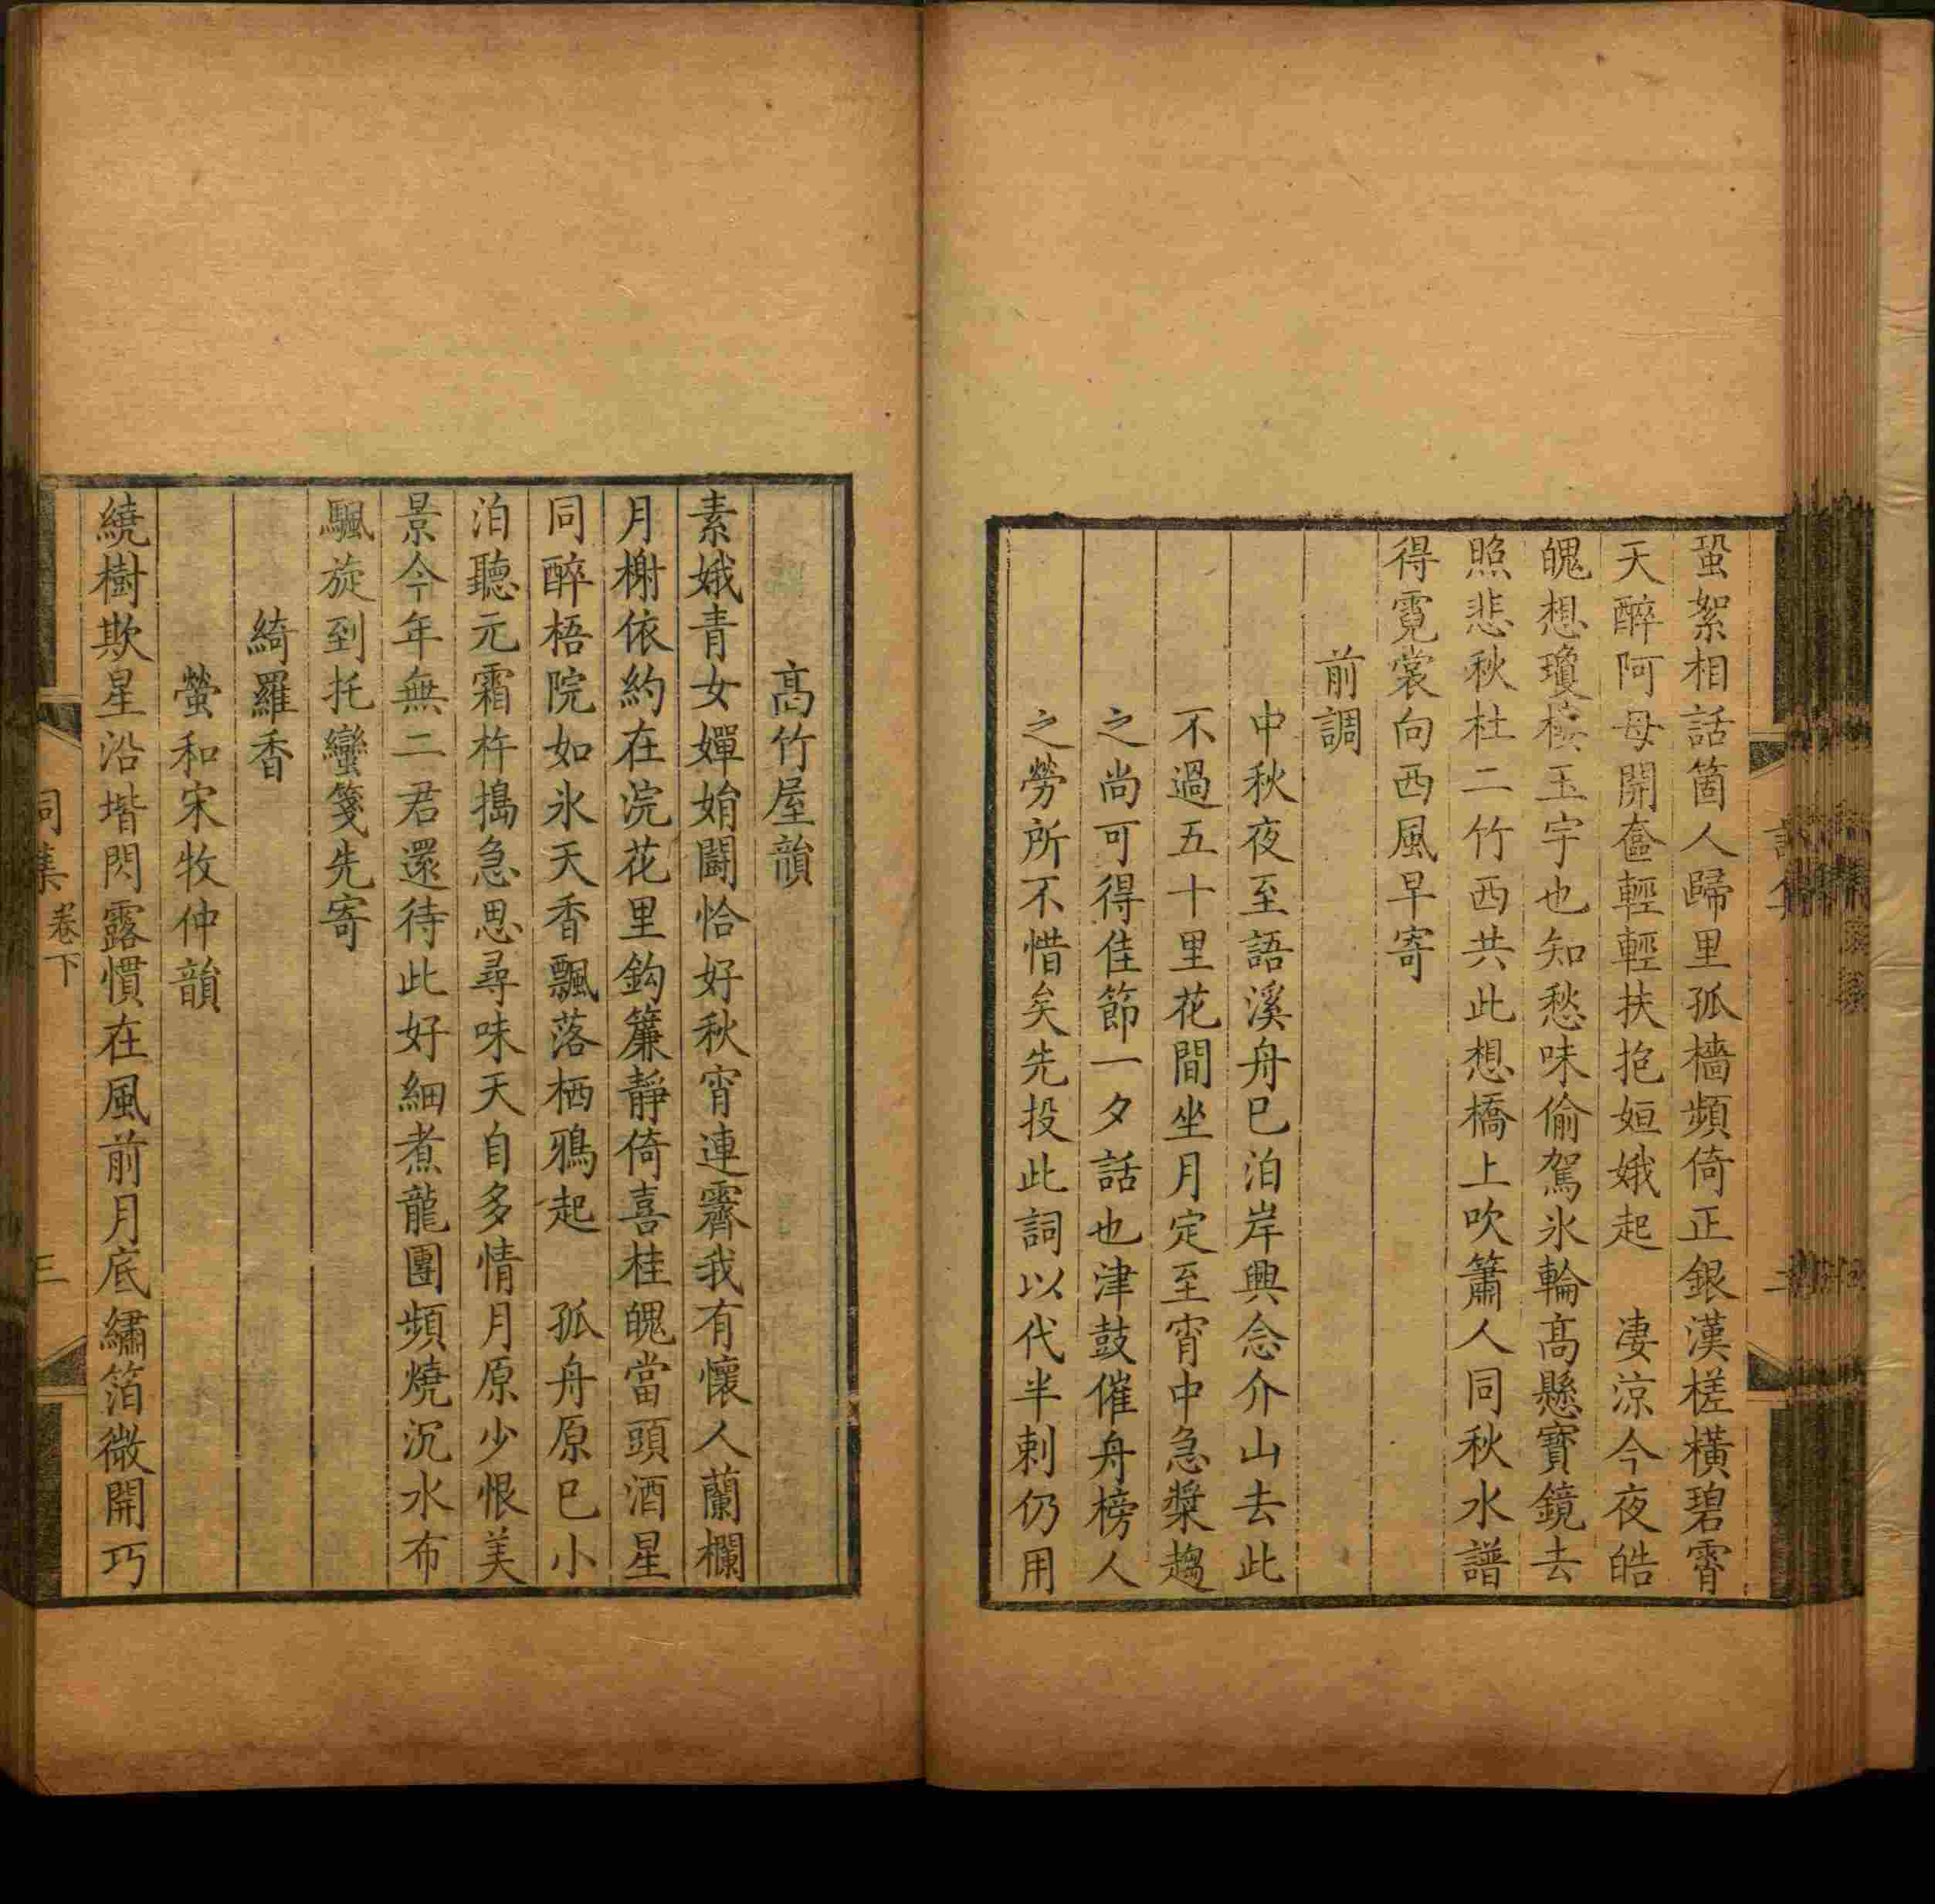 蛩絮相話箇人歸里孤檣頻倚正銀漢槎橫碧霄
天醉阿母開奩輕輕扶抱姮娥起　凄涼今夜皓
魄想瓊樓玉宇也知愁味偷駕氷輪髙懸寳鏡去
照悲秋杜二竹西共此想橋上吹簫人同秋水譜
得霓裳向西風早寄
前調
中秋夜至語溪舟巳泊岸興念介山去此
不過五十里花間坐月定至宵中急槳趨
之尚可得佳節一夕話也津鼓催舟榜人
之勞所不惜矣先投此詞以代半刺仍用
髙竹屋韻
素娥青女嬋娟鬬恰好秋宵連霽我有懷人蘭欄
月榭依約在浣花里鈎簾靜倚喜桂魄當頭酒星
同醉梧院如氷天香飄落栖鴉起　孤舟原巳小
泊聽元霜杵搗急思尋味天自多情月原少恨美
景今年無二君還待此好細煮龍團頻燒沉水布
颿旋到托蠻箋先寄
綺羅香
螢和宋牧仲韻
繞樹欺星沿堦閃露慣在風前月底繡箔微開巧
詞集 卷下
三